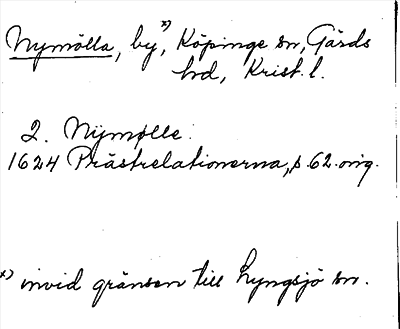 Nymölla, by, x) Köpinge sn, Gärds
hd, Krist. l.
2. Nÿmølle.
1624 Prästrelationerna, s. 62. orig.
x) invid gränsen till Lyngsjö sn.